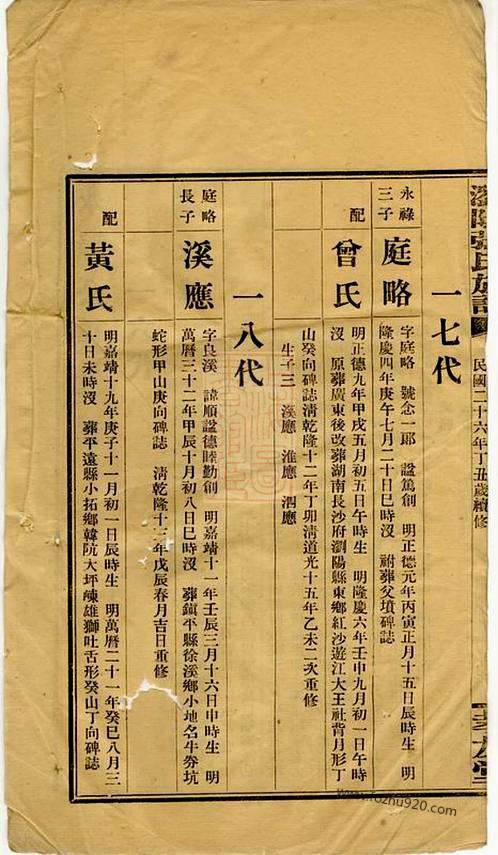 瀏陽張氏族譜
民國二十六年丁丑歲續修
一七代
永祿三子
庭略
字庭略 號念一郎 諡篤創 明正德元年丙寅正月十五日辰時生 明
隆慶四年庚午七月二十日巳時沒 祔葬父墳碑誌
配
曾氏
明正德九年甲戌五月初五日午時生 明隆慶六年壬申九月初一日午時
沒 原葬廣東後改葬湖南長沙府瀏陽縣東鄉紅沙遊江大王社背月形丁
山癸向碑誌清乾隆十二年丁卯清道光十五年乙未二次重修
生子三 溪應 淮應 泗應
一八代
庭略長子
溪應
字良溪 諱順諡德睦勤創 明嘉靖十一年壬辰三月十六日申時生 明
萬曆三十二年甲辰十月初八日巳時沒 葬鎭平縣徐溪鄉小地名牛券坑
蛇形甲山庚向碑誌 清乾隆十三年戊辰春月吉日重修
配
黃氏
明嘉靖十九年庚子十一月初一日辰時生 明萬曆二十一年癸巳八月三
十日未時沒 葬平遠縣小拓鄉韓阬大坪崠雄獅吐舌形癸山丁向碑誌
www.fozhu920.com